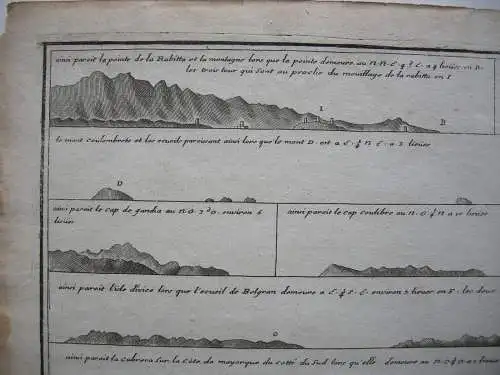 ainsi paroit la pointe de la Rabitta et la montagne lors que la pointe demeure au N.N.E. q.t E. a 4 lieües en R.
les trois tour qui sont au proche du mouillage de la rabitta en I
I
B
le mont coulombrete et les ecueils paroissant ainsi lors que le mont D. est a E. ¼ N E. a 2 lieües
D
ainsi paroit le cap de gandia au N.O. environ 6
lieües
ainsi paroit le cap coulibre au N.O. ¼ N a 10 lieües
ainsi paroit l'isle d'ivice lors que l'ecueil de Belgran demeure a E. ¼ S. E. environ 2 lieües en F. les deux
O
ainsi paroit la cabrera sur la côte de mayorque du costé du Sud lors qu'elle demeure au N.O. ¼ N a 2 lieües